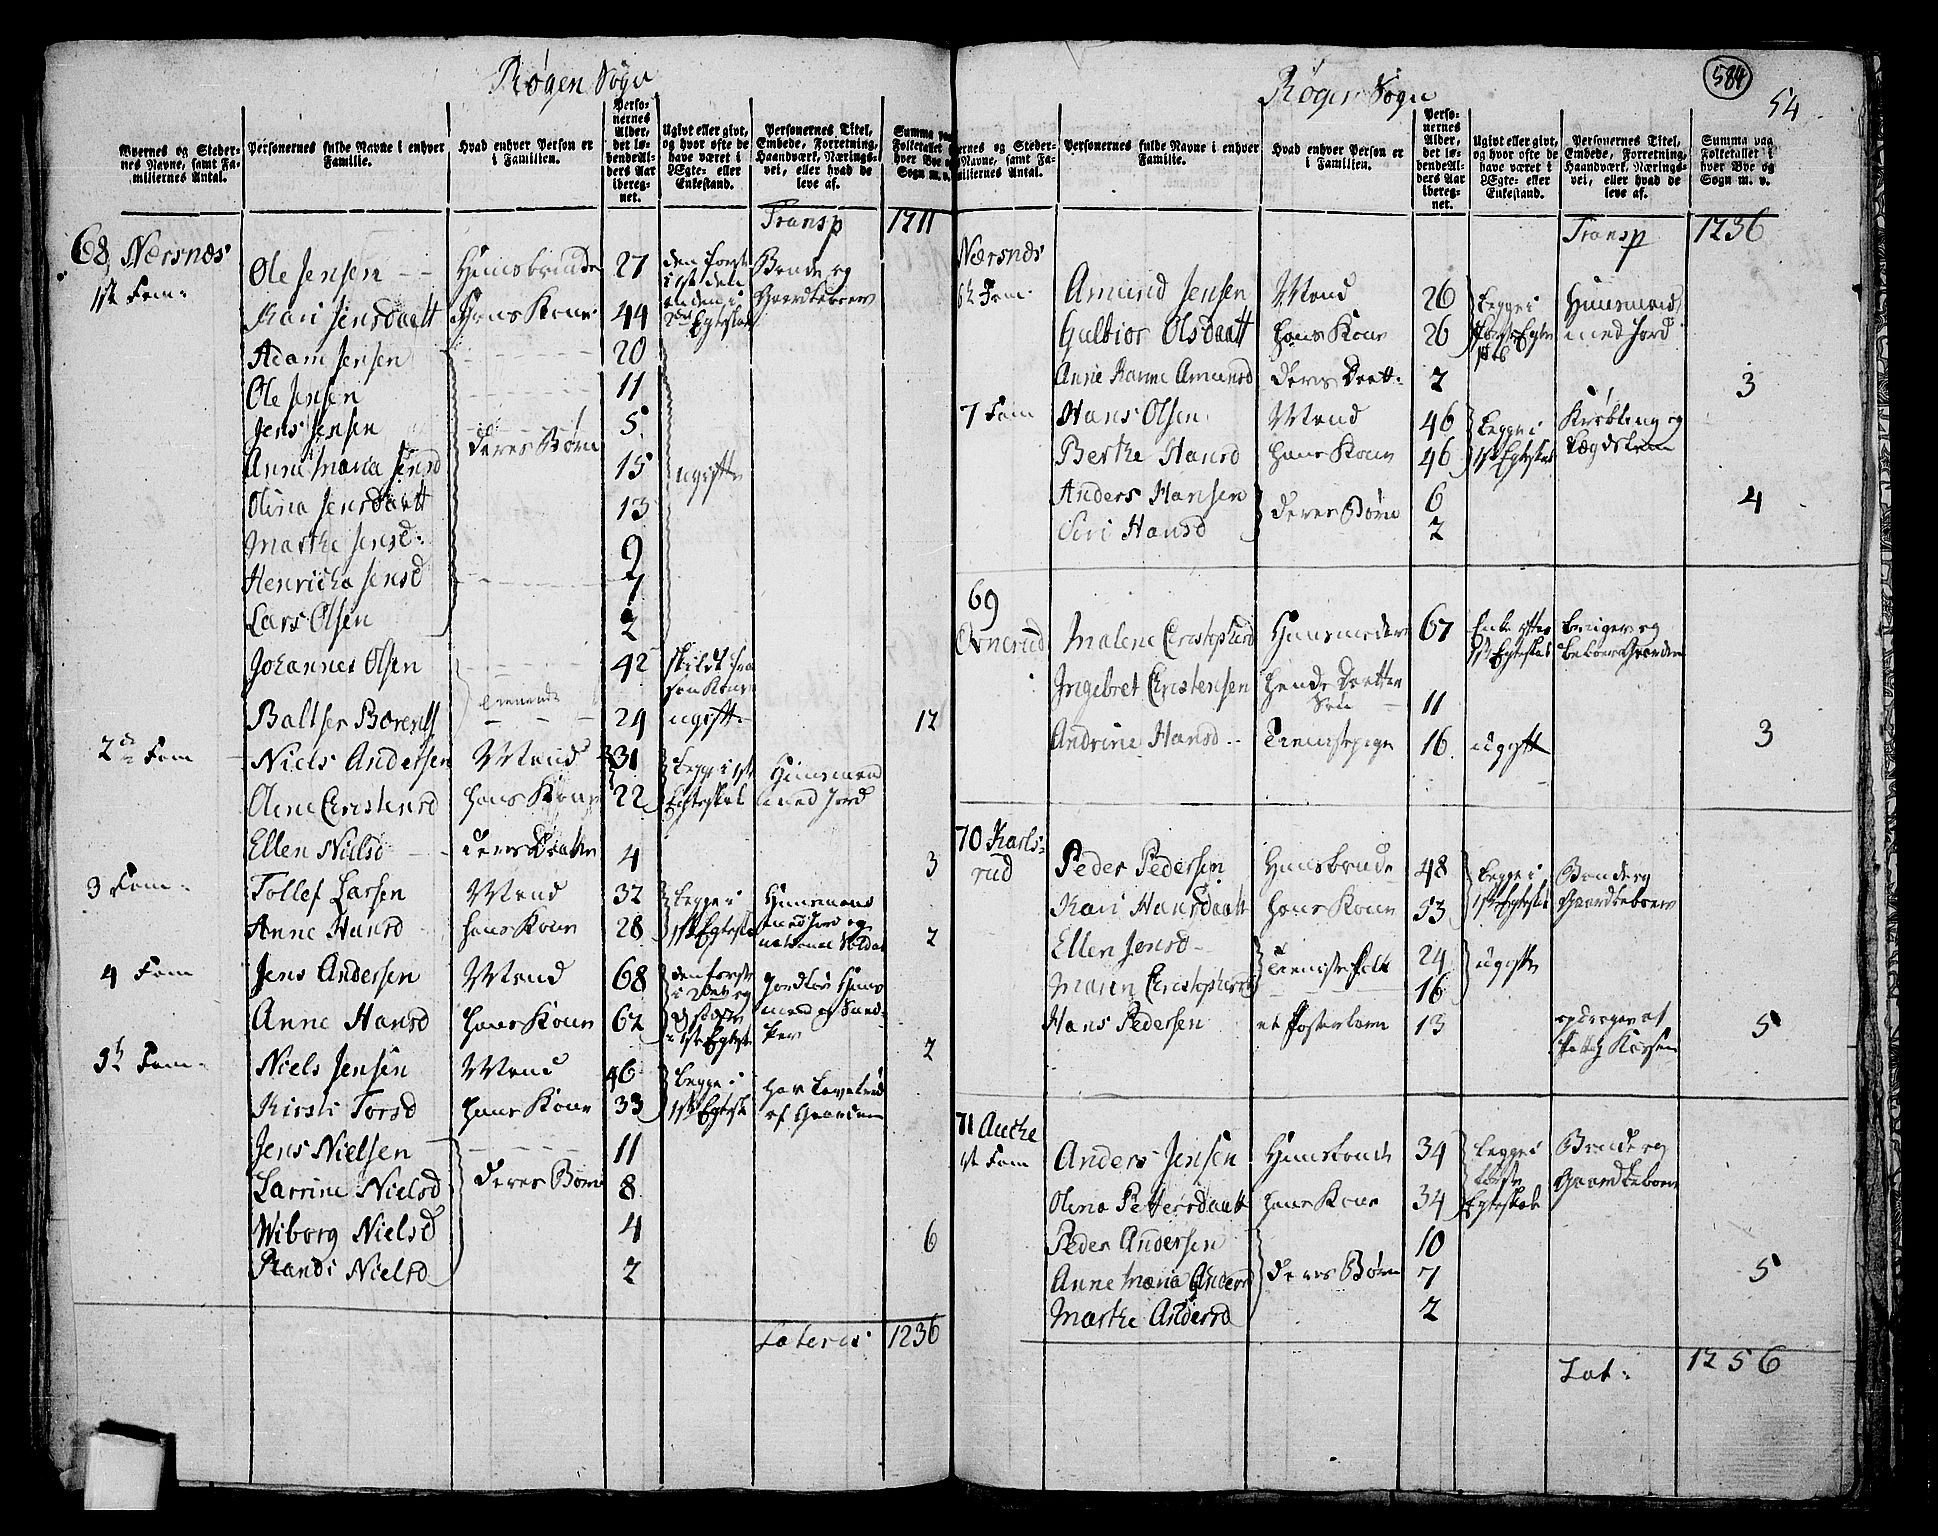 Røgen Sogn
Byernes og Stedernes Navne, samt Familiernes Antal.
Personernes fulde Navne i enhver Familie.
Hvad enhver Person er i Familien.
Personernes Alder, det løbende Alders Aar iberegnet.
Ugivt eller givt, og hvor ofte de have været i Ægte- eller Enkestand.
Personernes Titel, Embede, Forretning, Haandværk, Næringsvei, eller hvad de leve af.
Summa paa Folketallet i hver Bye og Sogn m. v.
Transp 1211
68 Nærsnæs
1st Fam:
Ole Jensen Huusbonde 27 Bonde og Gaardbeboer
Kari Jensdaatt Hans Kone 44
Adam Jensen 20
Ole Jensen 11
Jens Jensen 5
deres Børn
Anne Maria Jensd 15 ugifte
Olina Jensdaatt 13
Marthe Jensd: 9
Henricha Jensd 7
Lars Olsen 2
Johannes Olsen 42 skildt fra sin Kone
tienende
Baltser Börents 29 ugift 12
2de Fam
Niels Andersen Mand 31 begge i 1ste Huusmand
Oline Christensd hans Kone 22 Egteskab med Jord
Ellen Nielsd deres Daatter 4 3
3 Fam:
Tollef Larsen Mand 32 begge i Huusmand med Jord og
Anne Hansd hans Kone 28 1st Egteska national Soldat 2
4 Fam
Jens Andersen Mand 68 den første
Anne Hansd hans Kone 62 2
5t Fam:
Niels Jensen Mand 46 begge i
Kirsti Torsd hans Kone 33 1st Egteska af Gaarden
Jens Nielsen 11
Larrine Nielsd deres Børn 8
Wiborg Nielsd 4 6
Randi Nielsd 2
Lateris 1236
584
54
Røgen Sogn
Byernes og Stedernes Navne, samt Familiernes Antal.
Personernes fulde Navne i enhver Familie.
Hvad enhver Person er i Familien.
Personernes Alder, det løbende Alders Aar iberegnet.
Ugivt eller givt, og hvor ofte de have været i Ægte- eller Enkestand.
Personernes Titel, Embede, Forretning, Haandværk, Næringsvei, eller hvad de leve af.
Summa paa Folketallet i hver Bye og Sogn m. v.
Transp 1236
Nærsnæs
6t Fam.
Amund Jensen Mand 26 begge i Huusmand
Gulbior Olsdaatt hans Kone 26 med Jord
Anne Karine Amunsd deres Daatt: 2 3
7 Fam
Hans Olsen Mand 46 begge i Krøbling og
Berthe Hansd hans Kone 46 1st Egteskab Lægdslem
Anders Hansen deres Børn 6 4
Siri Hansd 2
69
Malene Christophersd Huusmoder 67 Enke efter bruger og
1st Egteskab beboer Gaarden
Ingebret Christensen hendes Datter Søn 11
Andrine Hansd tienistepige 16 ugift 3
70 Karlsrud
Peder Pedersen Huusbonde 48 begge i Bonde og
Kari Hansdaatt hans Kone 53 1st Egteskab Gaardbeboer
Ellen Jensd 24 ugifte
tieniste folk
Maren Christophersd 16
Hans Pedersen et Fosterbarn 13 opdrages af 5
71 Auche
1st Fam
Anders Jensen Huusbonde 34 begge i Bonde og
første Gaardbeboer
Olina Pettersdaatt hans Kone 34 Egteskab
Peder Andersen 10
Anne Maria Andersd deres Børn 7 5
Marthe Andersd 2
Lat: 1256